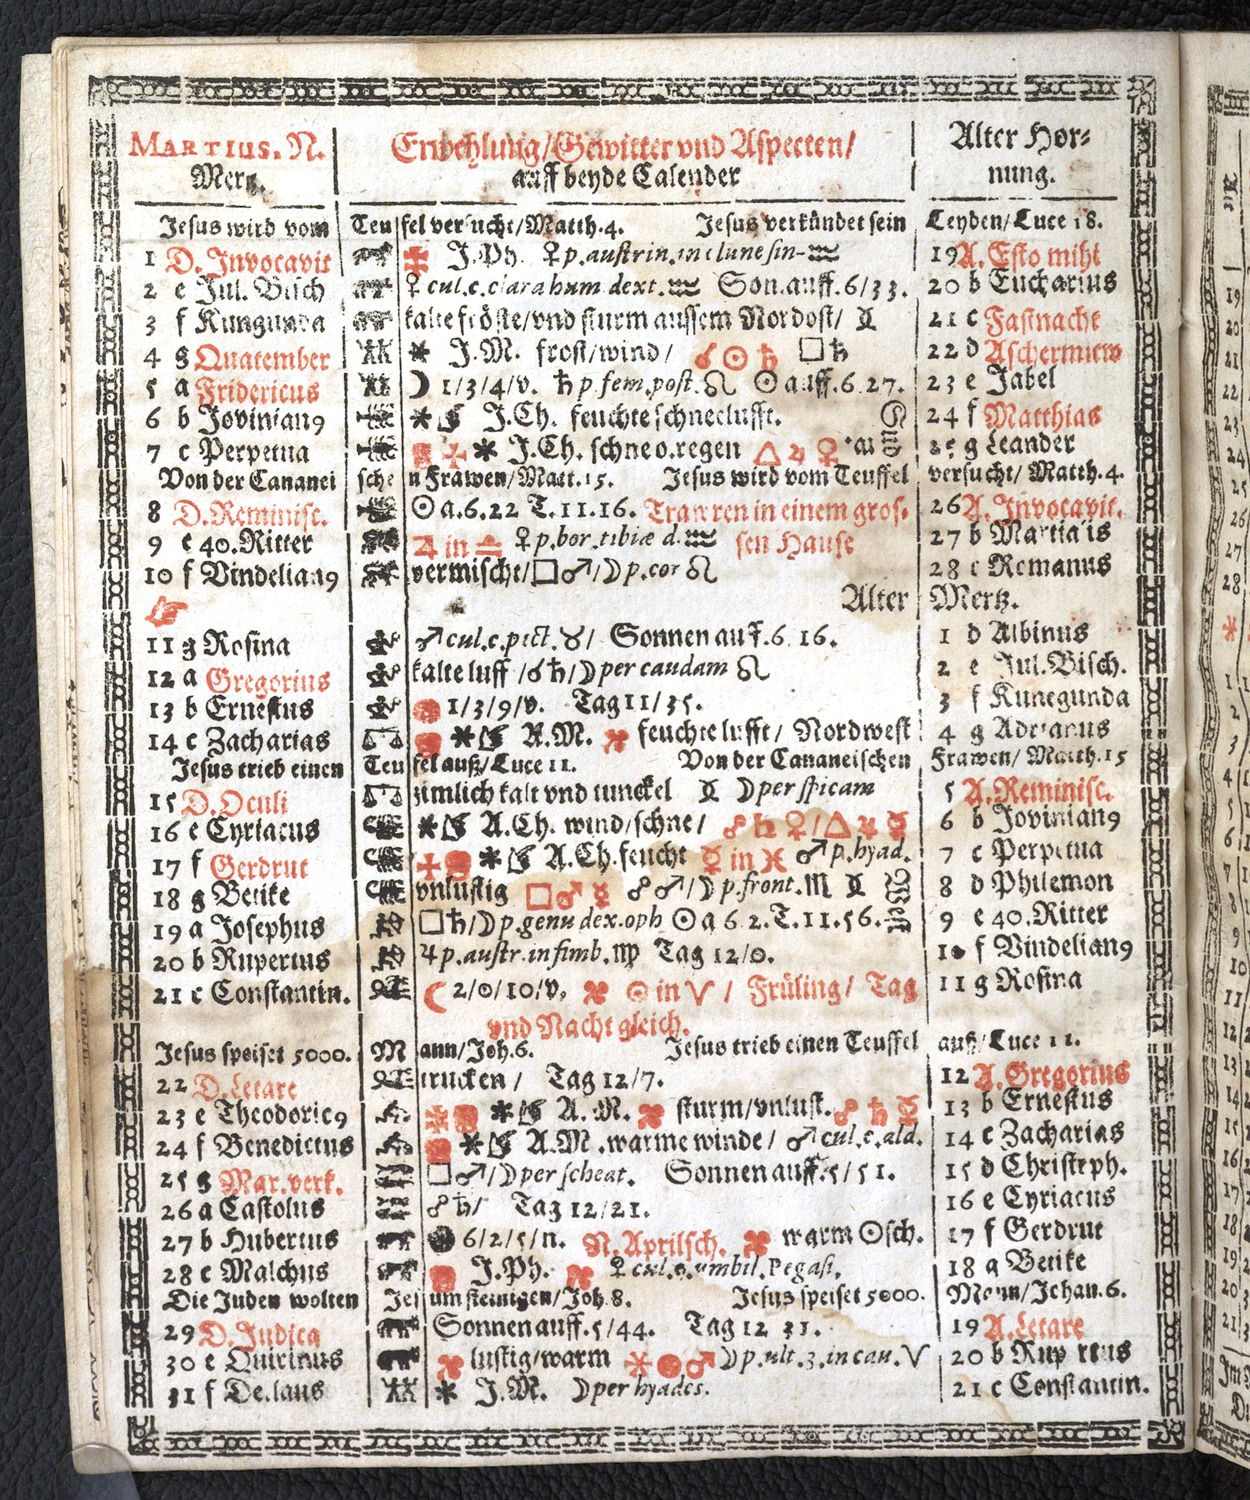 MARTIUS. N. Erwehlung/Gewitter vnd Aspecten/ Alter Hor-
Mertz. auff beyde Calender nung.
Jesus wird vom Teufel versucht/Matth.4. Jesus verkündet sein Leyden/Luce 18.
1 D. Invocavit J.Ph. ♀ p.austrin.in clune sin. ♒ 19 A. Esto mihi
2 e Jul. Bisch ♀ cul.c.clara hum dext. ♒ Son.auff.6/33. 20 b Eucharius
3 f Kungunda kalte fröste/vnd sturm aussem Nordost/ 21 c Fastnacht
4 g Quatember * J.M. frost/wind/ ☌ ☉ ♄ □ ♄ 22 d Aschermitw
5 a Fridericus ☽ 1/3/4/v. ♄ p.fem.post. ♌ ☉ auff.6.27. 23 e Jabel
6 b Jovinian9 * J.Ch. feuchte schneelufft. 24 f Matthias
7 c Perpetua * J.Ch. schne o.regen △ ♃ ♀ 25 g Leander
Von der Cananeischen Frawen/Matt.15. Jesus wird vom Teuffel versucht/ Matth.4.
8 D.Reminisc. ☉ a.6.22 T.11.16. Trawren in einem gros- 26 A. Invocavit.
9 e 40.Ritter ♃ in ♎ ♀ p.bor.tibiæ d. ♒ sen Hause 27 b Martialis
10 f Vindelian9 vermischt/□♂/☽ p.cor ♌ 28 c Romanus
Alter Mertz.
11 g Rosina ♂ cul.c.pect. ♉/ Sonnen auf.6.16. 1 d Albinus
12 a Gregorius kalte luff /☌♄/☽ per caudam ♌ 2 e Jul.Bisch.
13 b Ernestus 1/3/9/v. Tag 11/35. 3 f Kunegunda
14 c Zacharias * A.M. feuchte lufft/ Nordwest 4 g Adrianus
Jesus trieb einen Teufel auß/Luce 11. Von der Cananeischen Frawen/ Matth.15
15 D.Oculi zimlich kalt vnd tunckel ☽ per spicam 5 A.Reminisc.
16 e Cyriacus * A.Ch. wind/schne/ ☍ ♄ ♀/△ ♃ ☿ 6 b Jovinian9
17 f Gerdrut * A.Ch.feucht ☿ in ♓ ♂ p.hyad. 7 c Perpetua
18 g Betike vnlustig □ ♂ ☿ ☍ ♂/☽ p.front. ♏ 8 d Philemon
19 a Josephus □♄/☽ p.genu dex.oph ☉ a 6 2.T.11.56. 9 e 40.Ritter
20 b Rupertus ♃ p.austr.in fimb. ♍ Tag 12/0. 10 f Vindelian9
21 c Constantin. ☾ 2/0/10/v. ☉ in ♈ / Früling/ Tag 11 g Rosina
vnd Nacht gleich.
Jesus speiset 5000. Mann/Joh.6. Jesus trieb einen Teuffel auß/Luce 11.
22 D.Letare trucken / Tag 12/7. 12 A.Gregorius
23 e Theodoric9 * A. M. sturm/vnlust. ☍ ♄ ☿ 13 b Ernestus
24 f Benedictus * A.M .warme winde / ♂ cul.c.ald. 14 c Zacharias
25 g Mar.verk. □♂/☽ per scheat. Sonnen auff.5/51. 15 d Christeph.
26 a Castolus ☍♄/ Tag 12/21. 16 e Cyriacus
27 b Hubertus 6/2/5/n. N.Aprilsch. warm ☉sch. 17 f Gerdrut
28 c Malchus J.Ph. ♀ cul.c.umbil.Pegasi. 18 a Betike
Die Juden wolten Jesum steinigen/Joh.8. Jesus speiset 5000. Mann/Johan.6.
29 D.Judica Sonnen auff.5/44. Tag 12 31. 19 A.Letare
30 e Quirinus lustig/warm ☽ p.ult.3.in cau. ♈ 20 b Rupertus
31 f Detlaus * J.M. ☽ per hyades. 21 c Constantin.